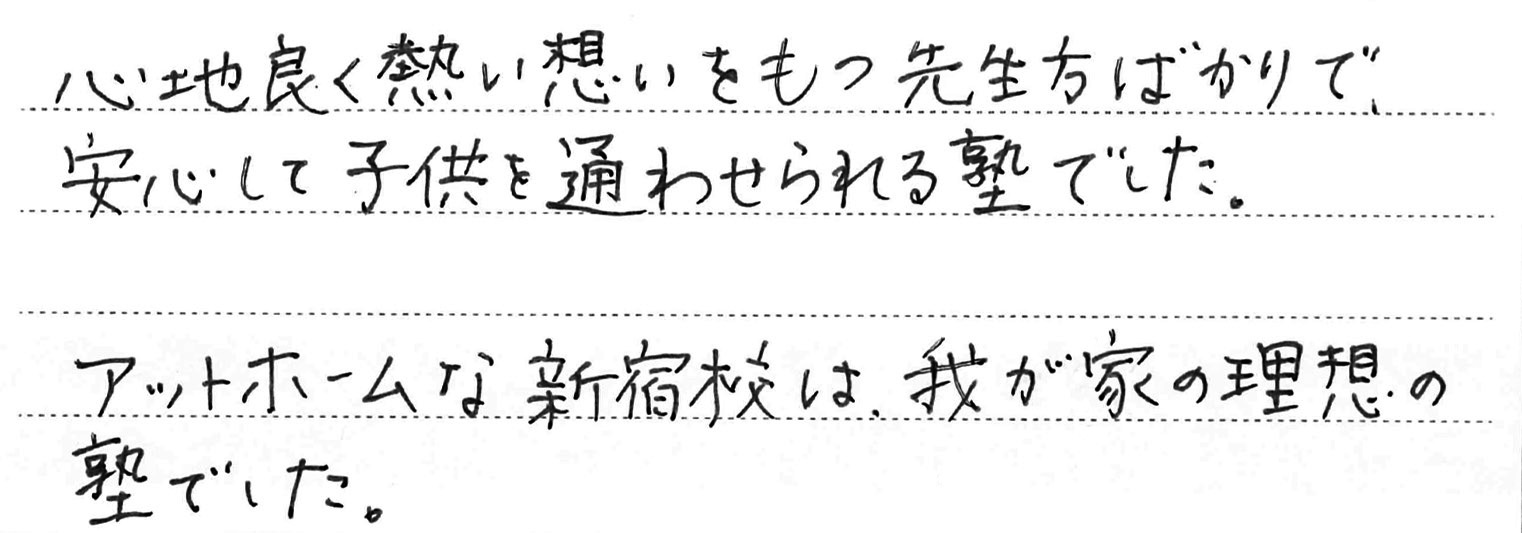 心地良く熱い想いをもつ先生方ばかりで、
安心して子供を通わせられる塾でした。
アットホームな新宿校は、我が家の理想の
塾でした。